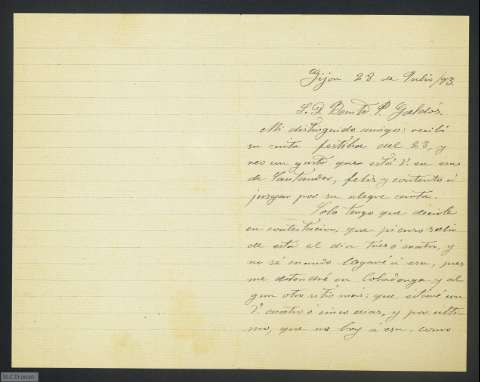 Gijón 28 de Julio/93.
S. D Benito P. Galdós.
Mi distinguido amigo: recibí
su carta festiva del 23, y
veo con gusto que está V. en esa
de Santander, feliz y contento á
juzgar por su alegre carta.
Solo tengo que decirle
en contestación, que pienso salir
de esta el dia tres ó cuatro, y
no sé cuando llegaré á esa, pues
me detendré en Cobadonga y al
gun otro sitio mas: que estaré con
V. cuatro ó cinco dias, y por ulti
mo, que no voy á esa como